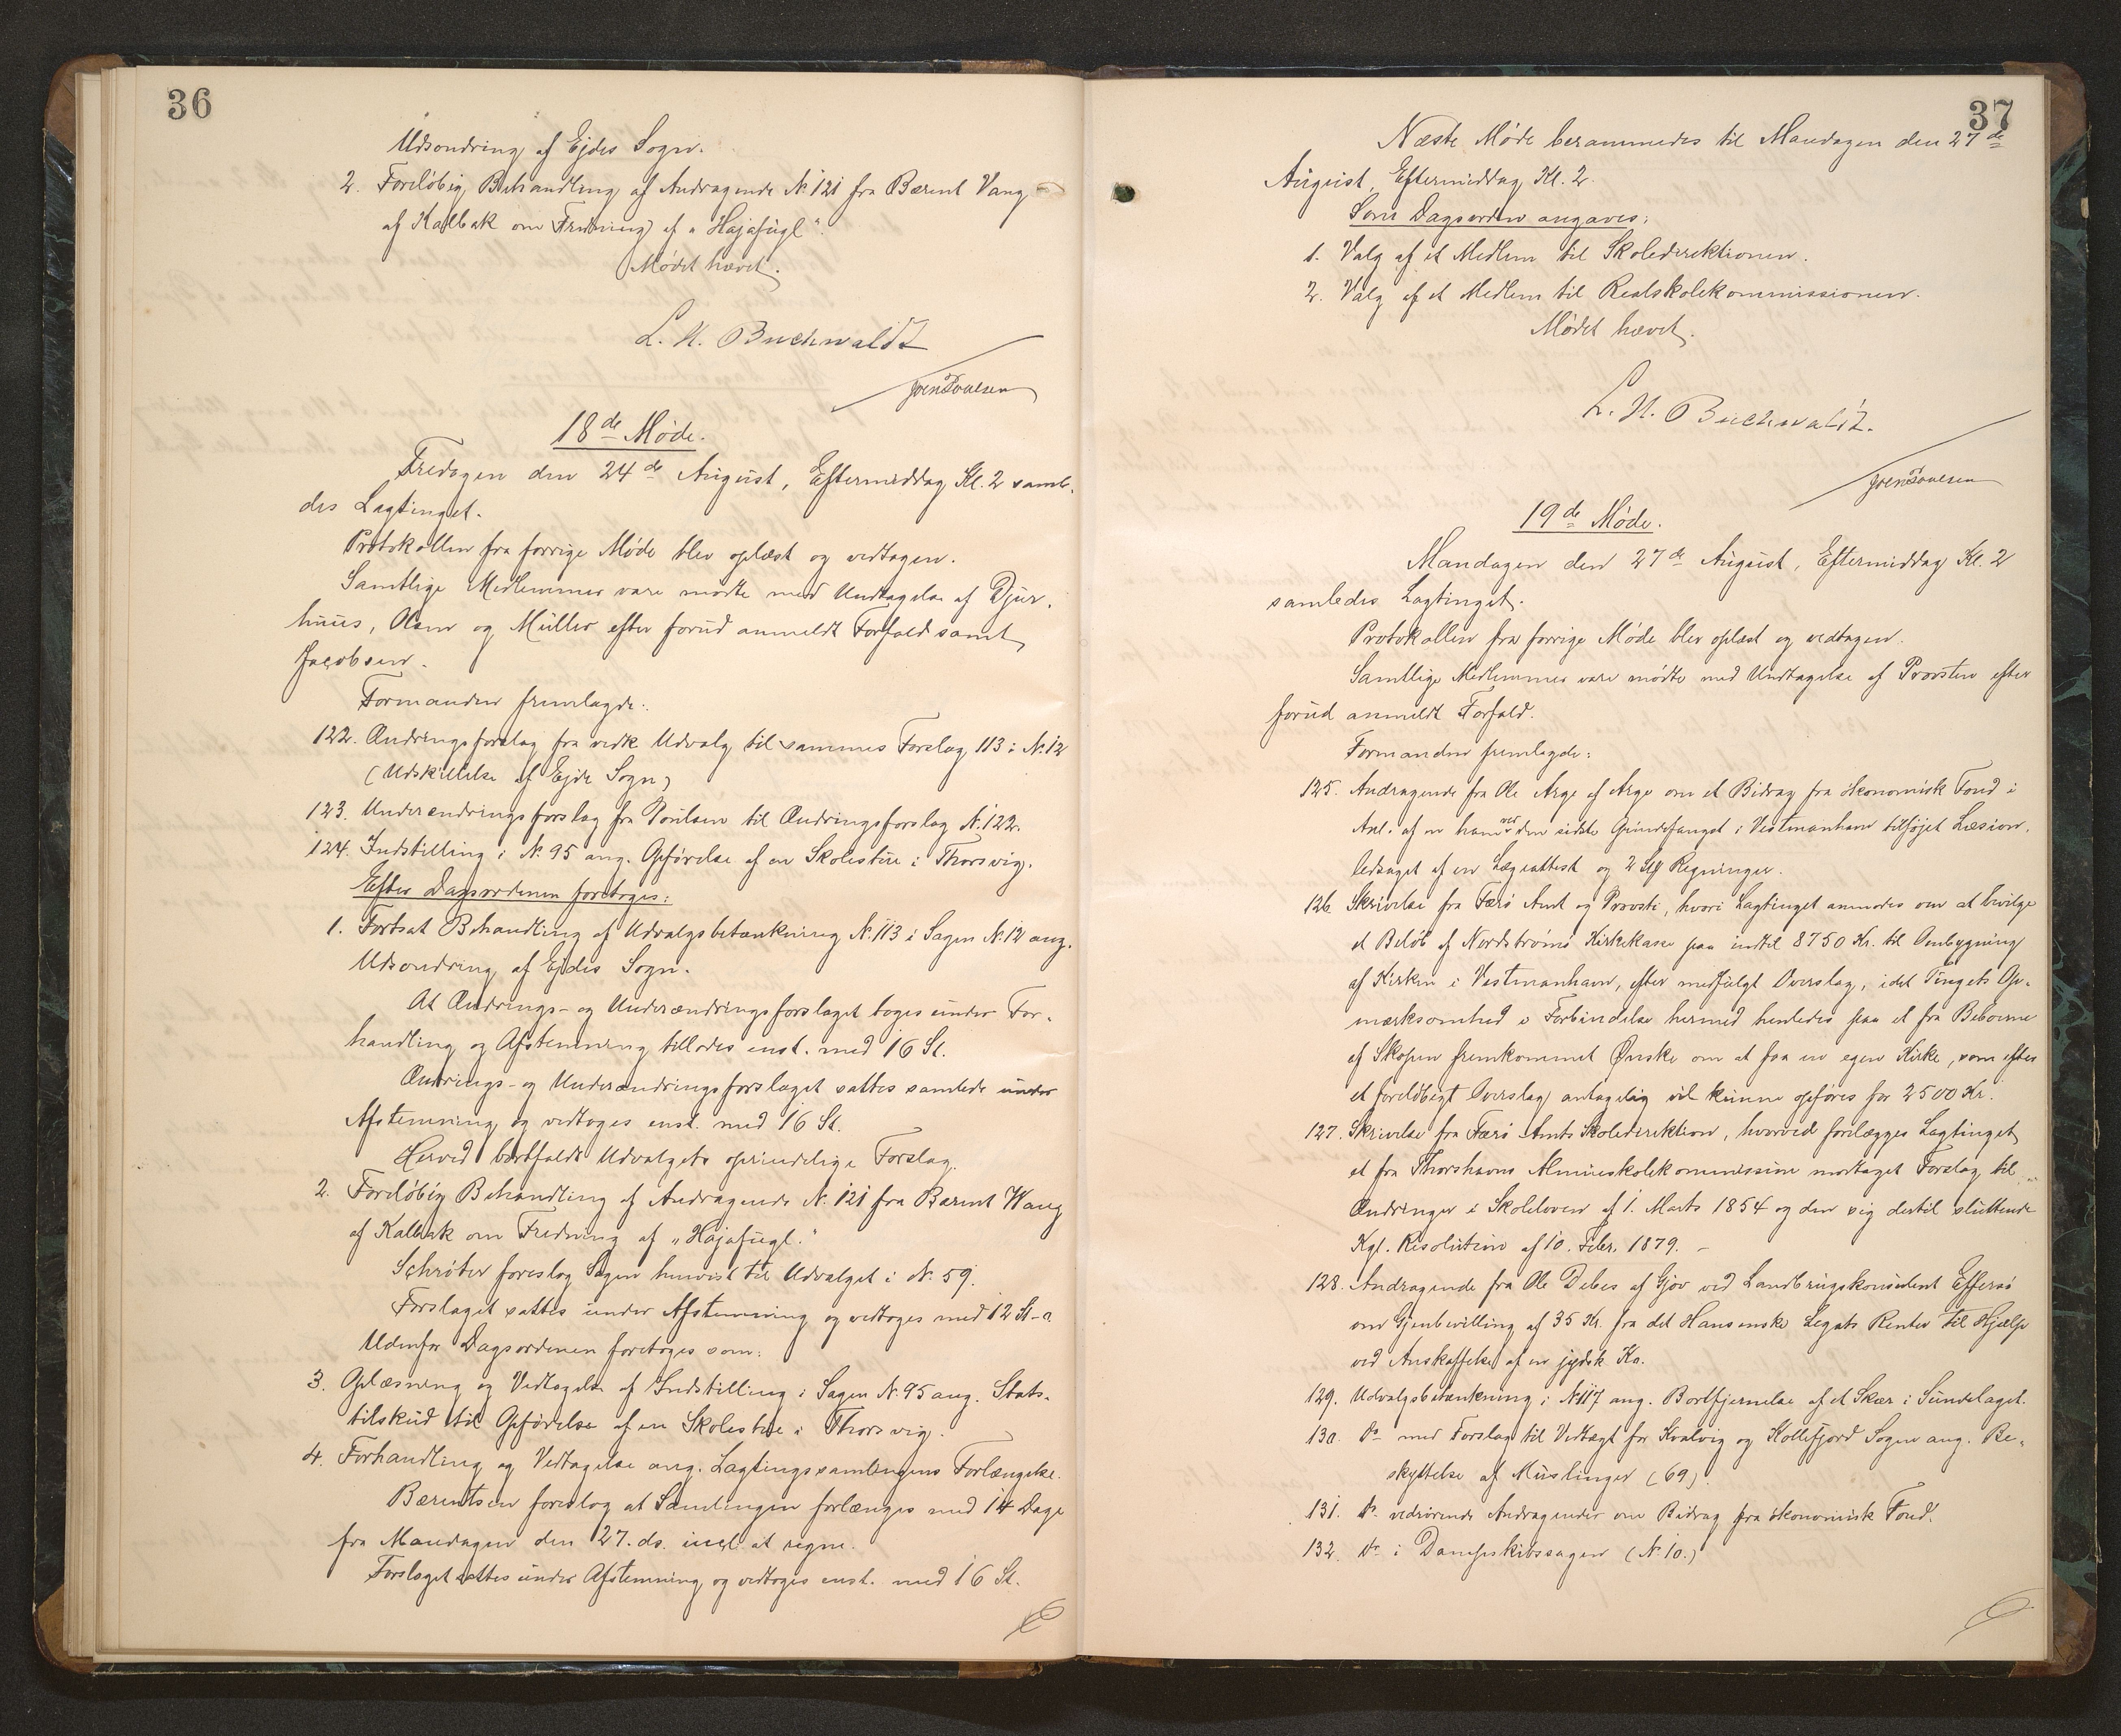 36
Udsondring af Ejdes Sogn.
2. Foreløbig Behandling af Andragende N. 121 fra Bærent Vang
af Kalbak om Fredning af „Hajafugl“.
Mødet hævet.
L. H. Buchwaldt
Joen Poulsen
18de Møde.
Fredagen den 24de August, Eftermiddag Kl. 2 samle-
des Lagtinget.
Protokollen fra forrige Møde blev oplæst og vedtagen.
Samtlige Medlemmer vare mødte med Undtagelse af Djur-
huus, Olsen og Müller efter forud anmeldt Forfald samt
Jacobsen.
Formanden fremlagde:
122. Ændringsforslag fra vedk Udvalg til sammes Forslag 113 i N. 12
(Udskillelse af Ejde Sogn)
123. Underændringsforslag fra Poulsen til Ændringsforslag N. 122.
124. Indstilling i N. 95 ang. Opførelse af en Skolestue i Thorsvig.
Efter Dagsordenen foretoges:
1. Fortsat Behandling af Udvalgsbetænkning N. 113 i Sagen N. 12 ang.
Udsondring af Ejdes Sogn.
At Ændrings- og Underændringsforslaget toges under For-
handling og Afstemning tillodes enst. med 16 St.
Ændrings- og Underændringsforslaget sattes samlede under
Afstemning og vedtoges enst. med 16 St.
Herved bortfaldt Udvalgets oprindelige Forslag.
2. Foreløbig Behandling af Andragende N. 121 fra Bærent Wang
af Kalbak om Fredning af „Hajafugl.“
Schrøter foreslog Sagen henvist til Udvalget i N. 59.
Forslaget sattes under Afstemning og vedtoges med 12 St.
Udenfor Dagsordenen foretoges som:
3. Oplæsning og Vedtagelse af Indstilling i Sagen N. 95 ang. Stats-
tilskud til Opførelse af en Skolestue i Thorsvig.
4. Forhandling og Vedtagelse ang. Lagtingssamlingens Forlængelse.
Bærentsen foreslog at Samlingen forlænges med 14 Dage
fra Mandagen den 27. ds. incl. at regne.
Forslaget sattes under Afstemning og vedtoges enst. med 16 St.
37
Næste Møde berammedes til Mandagen den 27de
August, Eftermiddag Kl. 2.
Som Dagsorden angaves:
1. Valg af et Medlem til Skoledirektionen.
2. Valg af et Medlem til Realskolekommissionen.
Mødet hævet.
L. H. Buchwaldt.
Joen Poulsen
19de Møde.
Mandagen den 27de August, Eftermiddag Kl. 2
samledes Lagtinget.
Protokollen fra forrige Møde blev oplæst og vedtagen.
Samtlige Medlemmer vare mødte med Undtagelse af Provsten efter
forud anmeldt Forfald.
Formanden fremlagde:
125. Andragende fra Ole Arge af Arge om et Bidrag fra økonomisk Fond i
Anl. af en ham ved den sidste Grindefangst i Vestmanhavn tilføjet Læsion.
ledsaget af en Lægeattest og 2 Regninger.
126. Skrivelse fra Færø Amt og Provsti, hvori Lagtinget anmodes om at bevilge
et Beløb af Nordstrømø Kirkekasse paa indtil 8750 Kr. til Ombygning
af Kirken i Vestmanhavn, efter medfulgt Overslag, idet Tingets Op-
mærksomhed i Forbindelse hermed henledes paa et fra Beboerne
af Skopen fremkommet Ønske om at faa en egen Kirke, som efter
et foreløbigt Overslag antagelig vil kunne opføres for 2500 Kr.
127. Skrivelse fra Færø Amts Skoledirektion, hvorved forelægges Lagtinget
et fra Thorshavns Almueskolekommission modtaget Forslag til
Ændringer i Skoleloven af 1. Marts 1854 og den sig dertil sluttende
Kgl. Resolution af 10. Febr. 1879. –
128. Andragende fra Ole Debes af Gjov ved Landbrugskonsulent Effersø
om Gjenbevilling af 35 Kr. fra det Hansenske Legats Renter til Hjælp
ved Anskaffelse af en jydsk Ko.
129. Udvalgsbetænkning i N. 117 ang. Bortfjernelse af et Skær i Sundelaget.
130. Do med Forslag til Vedtægt for Kvalvig og Kollefjord Sogne ang. Be-
skyttelse af Muslinger (69).
131. Do vedrørende Andragender om Bidrag fra økonomisk Fond.
132. Do i Dampskibssagen (N. 10.)